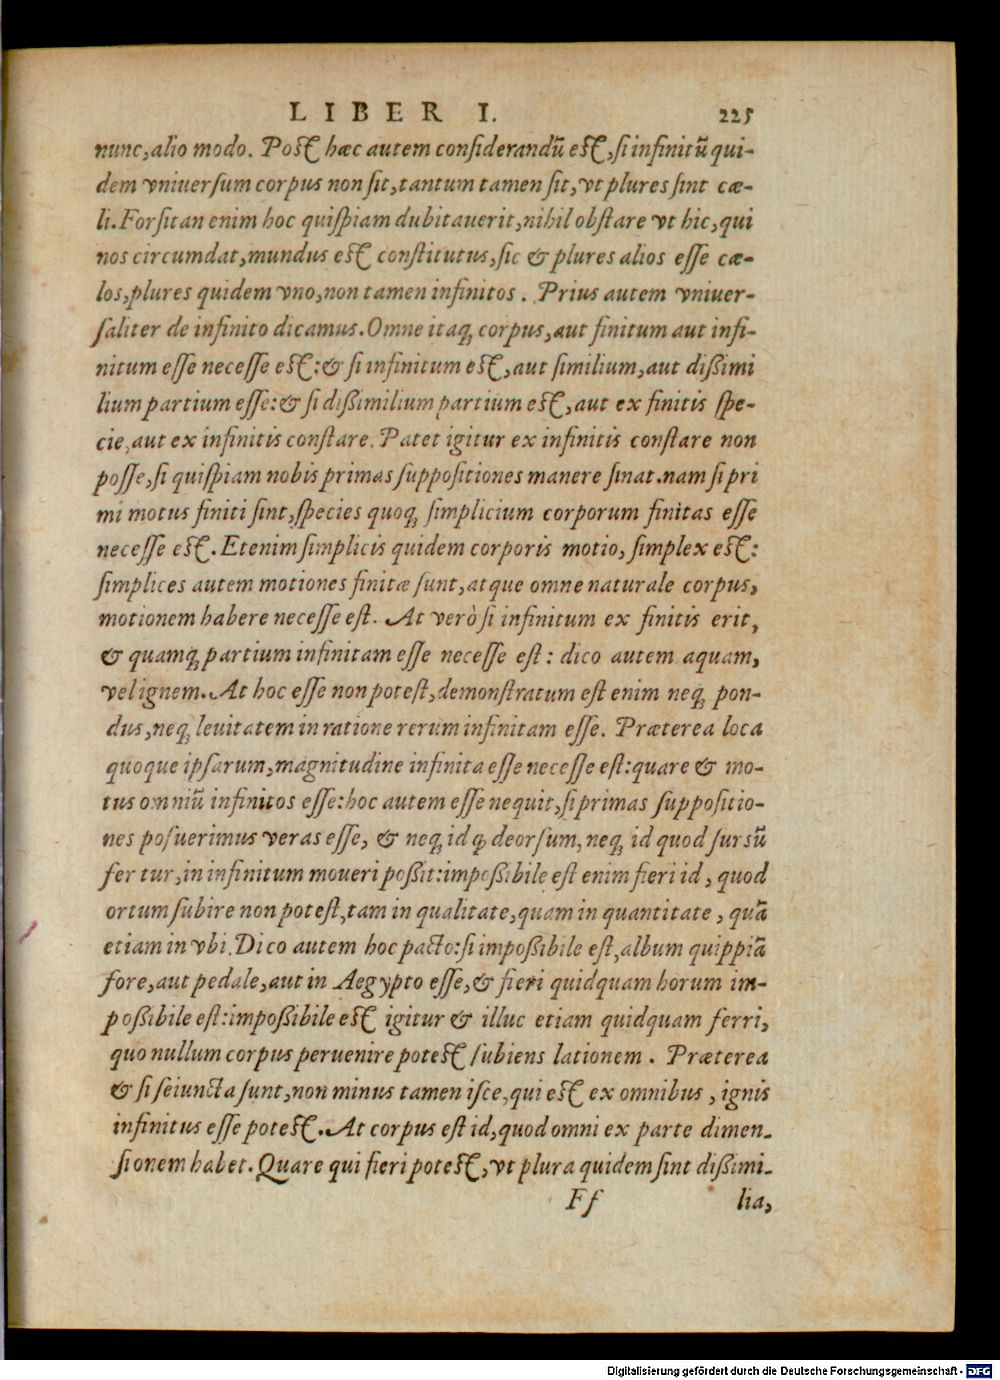 LIBER I. 225
nunc, alio modo. Post hæc autem considerandũ est, si infinitũ qui-
dem vniuersum corpus non sit, tantum tamen sit, vt plures sint cæ-
li. Forsitan enim hoc quispiam dubitauerit, nihil obstare vt hic, qui
nos circumdat, mundus est constitutus, sic & plures alios esse cæ-
los, plures quidem vno, non tamen infinitos. Prius autem vniuer-
saliter de infinito dicamus. Omne itaq; corpus, aut finitum aut infi-
nitum esse necesse est: & si infinitum est, aut similium, aut dißimi
lium partium esse: & si dißimilium partium est, aut ex finitis spe-
cie, aut ex infinitis constare. Patet igitur ex infinitis constare non
posse, si quispiam nobis primas suppositiones manere sinat. nam si pri
mi motus finiti sint, species quoq; simplicium corporum finitas esse
necesse est. Etenim simplicis quidem corporis motio, simplex est:
simplices autem motiones finitæ sunt, atque omne naturale corpus,
motionem habere necesse est. At verò si infinitum ex finitis erit,
& quamq; partium infinitam esse necesse est: dico autem aquam,
vel ignem. At hoc esse non potest, demonstratum est enim neq; pon-
dus, neq; leuitatem in ratione rerum infinitam esse. Præterea loca
quoque ipsarum, magnitudine infinita esse necesse est: quare & mo-
tus omniũ infinitos esse: hoc autem esse nequit, si primas suppositio-
nes posuerimus veras esse, & neq; id ꝙ deorsum, neq; id quod sursũ
fertur, in infinitum moueri poßit: impoßibile est enim fieri id, quod
ortum subire non potest, tam in qualitate, quam in quantitate, quã
etiam in vbi. Dico autem hoc pacto: si impoßibile est, album quippiã
fore, aut pedale, aut in Aegypto esse, & fieri quidquam horum im-
poßibile est: impoßibile est igitur & illuc etiam quidquam ferri,
quo nullum corpus peruenire potest subiens lationem. Præterea
& si seiuncta sunt, non minus tamen isce, qui est ex omnibus, ignis
infinitus esse potest. At corpus est id, quod omni ex parte dimen-
sionem habet. Quare qui fieri potest, vt plura quidem sint dißimi-
Ff lia,
Digitalisierung gefördert durch die Deutsche Forschungsgemeinschaft - DFG